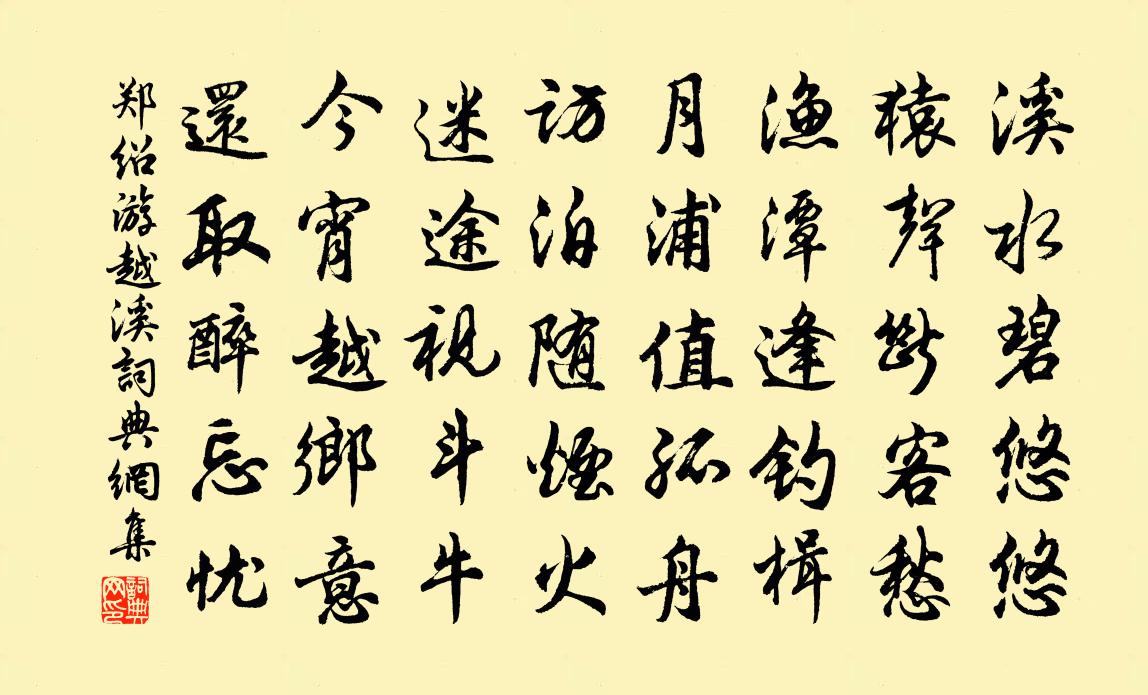 溪水碧悠悠
猿聲斷客愁
渔潭逢钓楫
月浦值孤舟
访泊随煙火
迷途視斗牛
今宵越鄉意
還取醉忘忧
郑绍游越溪詞典網集
詞典网印